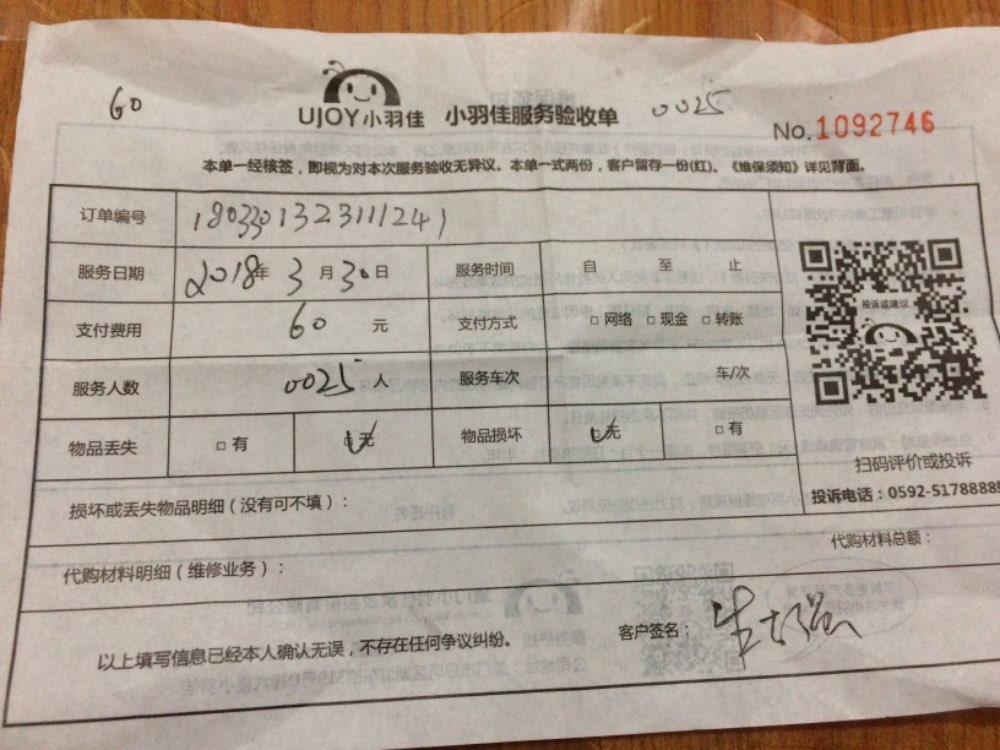 60
UJOY小羽佳 小羽佳服务验收单 0025
No.1092746
本单一经核签，即视为对本次服务验收无异议。本单一式两份，客户留存一份(红)。《维保须知》详见背面。
订单编号 180330132311241
服务日期 2018年 3月30日 服务时间 自 至 止
投诉或建议
支付费用 60 元 支付方式 □网络 □现金 □转账
服务人数 0025人 服务车次 车/次
物品丢失 □有 □无 物品损坏 □无 □有
扫码评价或投诉
投诉电话：0592-5178888
损坏或丢失物品明细（没有可不填）：
代购材料总额：
代购材料明细（维修业务）：
客户签名：
以上填写信息已经本人确认无误，不存在任何争议纠纷。